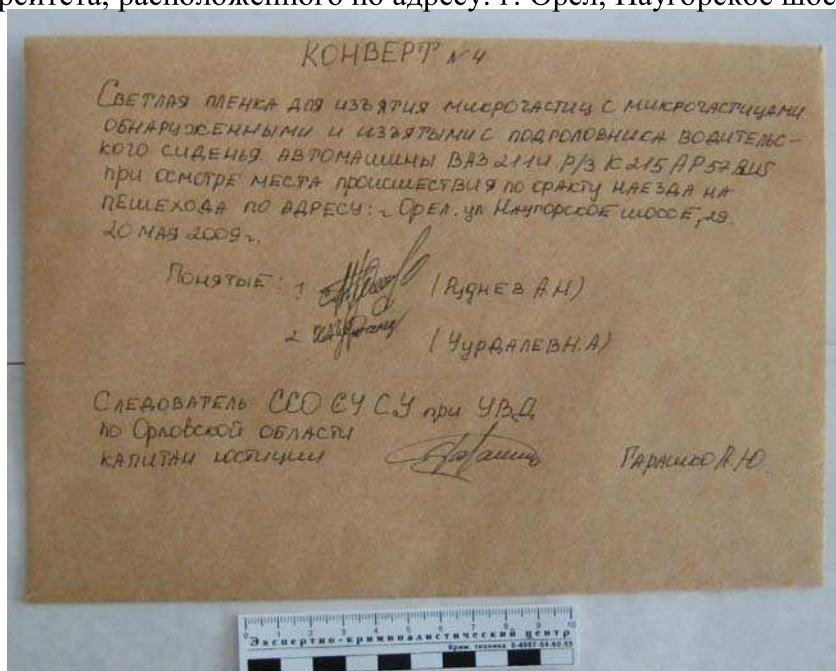 расположенного по адресу: г. Орел, Наугорское шос
КОНВЕРТ №4
СВЕТЛАЯ ПЛЕНКА ДЛЯ ИЗЪЯТИЯ МИКРОЧАСТИЦ С МИКРОЧАСТИЦАМИ
ОБНАРУЖЕННЫМИ И ИЗЪЯТЫМИ С ПОДГОЛОВНИКА ВОДИТЕЛЬС-
КОГО СИДЕНЬЯ АВТОМАШИНЫ ВАЗ 2114 Р/З К 215 АР 57 RUS
ПРИ ОСМОТРЕ МЕСТА ПРОИСШЕСТВИЯ ПО ФАКТУ НАЕЗДА НА
ПЕШЕХОДА ПО АДРЕСУ: г. ОРЕЛ. ул НАУГОРСКОЕ ШОССЕ, 29.
20 МАЯ 2009 г.
ПОНЯТЫЕ: 1 (РУДНЕВ А.Н)
2 (ЧУРДАЛЕВ Н.А)
СЛЕДОВАТЕЛЬ ССО СУ СУ при УВД
по Орловской ОБЛАСТИ
КАПИТАН ЮСТИЦИИ ГАРАШКО А.Ю.
0 1 2 3 4 5 6 7 8 9 10
Экспертно-криминалистический центр